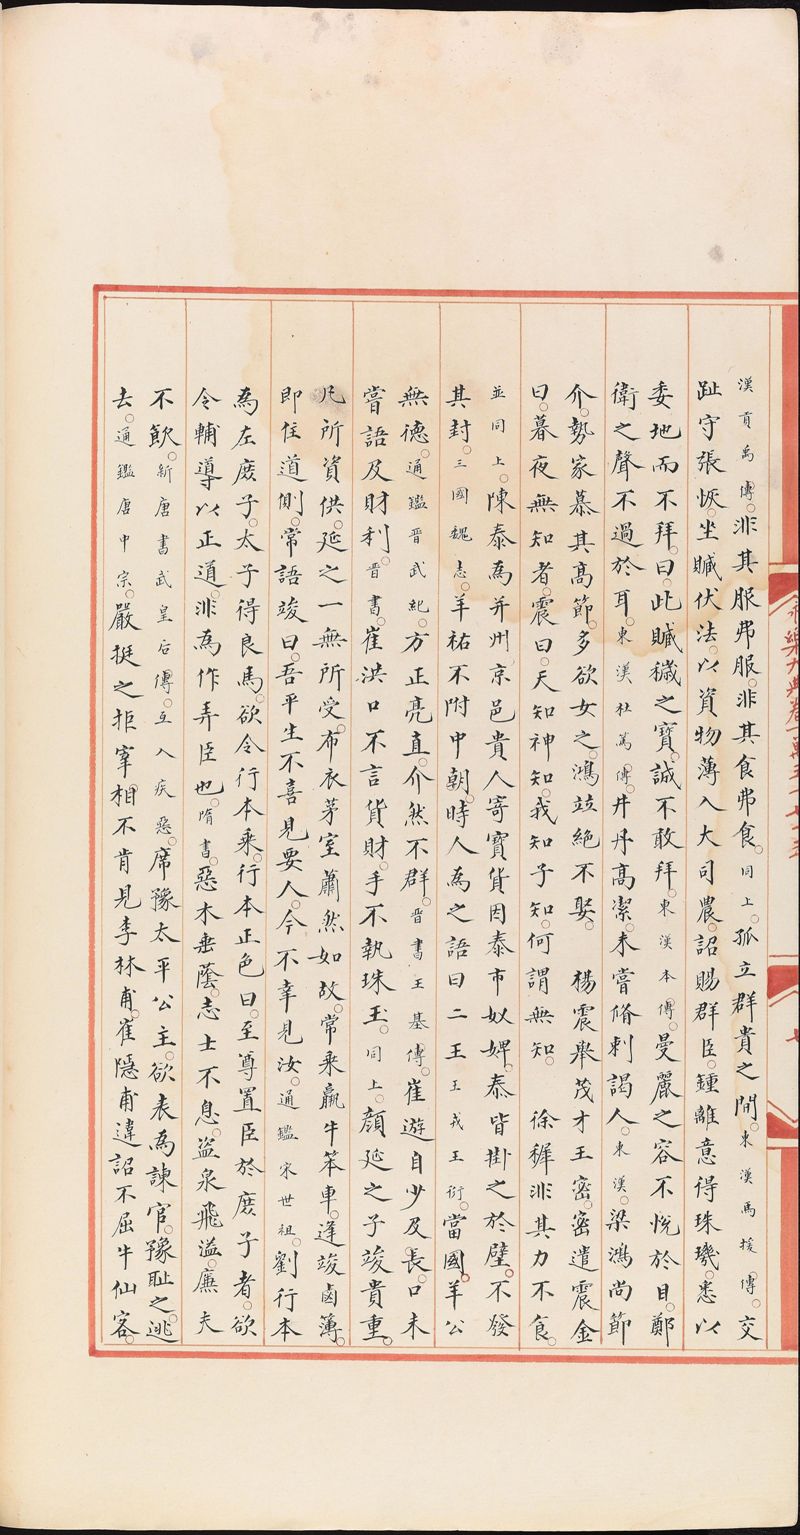 漢貢禹傳。非其服弗服。非其食弗食。同上。孤立群貴之間。東漢馬援傳。交
趾守張恢。坐贓伏法。以資物薄入大司農。詔賜群臣。鍾離意得珠璣。悉以
委地而不拜。曰。此贓穢之寶。誠不敢拜。東漢本傳。曼麗之容不恱於目。鄭
衛之聲不過於耳。東漢杜篤傳。井丹高潔。未嘗脩刺謁人。東漢。梁鴻尚節
介。勢家慕其高節。多欲女之。鴻竝絕不娶。　楊震舉茂才王密。密遣震金
曰。暮夜無知者。震曰。天知神知。我知子知。何謂無知。　徐穉非其力不食。
並同上。陳泰為并州京邑貴人寄寶貨因泰市奴婢。泰皆掛之於壁。不發
其封。三國魏志。羊祐不附中朝。時人為之語曰二王王戎王衍。當國。羊公
無德。通鑑晉武紀。方正亮直。介然不群。晉書王基傳。崔遊自少及長。口未
嘗語及財利。晉書。崔洪口不言貨財。手不執珠玉。同上。顏延之子竣貴重。
凡所資供。延之一無所受。布衣茅室蕭然如故。常乘羸牛笨車。逢竣鹵簿。
即住道側。常語竣曰。吾平生不喜見要人。今不幸見汝。通鑑宋世祖。劉行本
為左庶子。太子得良馬。欲令行本乘。行本正色曰。至尊置臣於庶子者。欲
令輔導以正道。非為作弄臣也。隋書。惡木垂蔭。志士不息。盜泉飛溢。廉夫
不飲。新唐書武皇后傳。互入疾惡。席豫太平公主。欲表為諫官。豫耻之。逃
去。通鑑唐中宗。嚴挺之拒宰相不肯見李林甫。崔隱甫違詔不屈牛仙客。